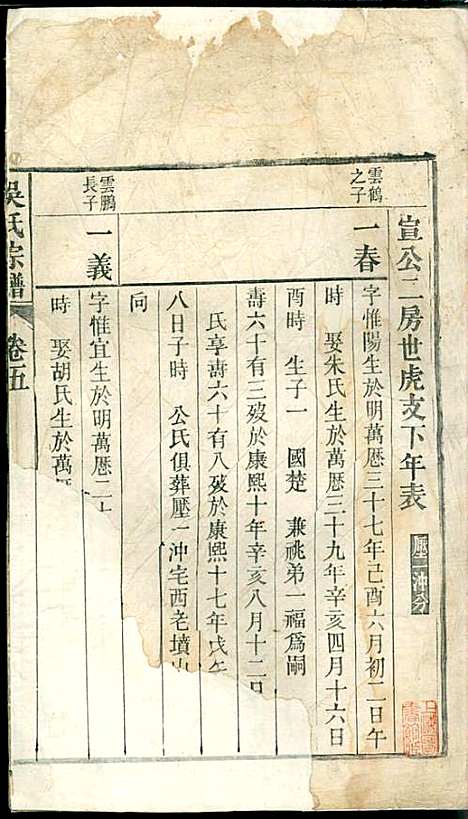 宣公二房世虎支下年表
壓一沖分
雲鶴
之子
一春
字惟陽生於明萬厯三十七年己酉六月初二日午
時　娶朱氏生於萬厯三十九年辛亥四月十六日
酉時　生子一　國楚　兼祧弟一福爲嗣
壽六十有三歿於康熙十年辛亥八月十二日
氏享壽六十有八歿於康熙十七年戊午
八日子時　公氏俱葬壓一沖宅西老墳山
向
雲鵬
長子
一義
字惟宜生於明萬厯二十
時　娶胡氏生於萬厯
吳氏宗譜
卷五